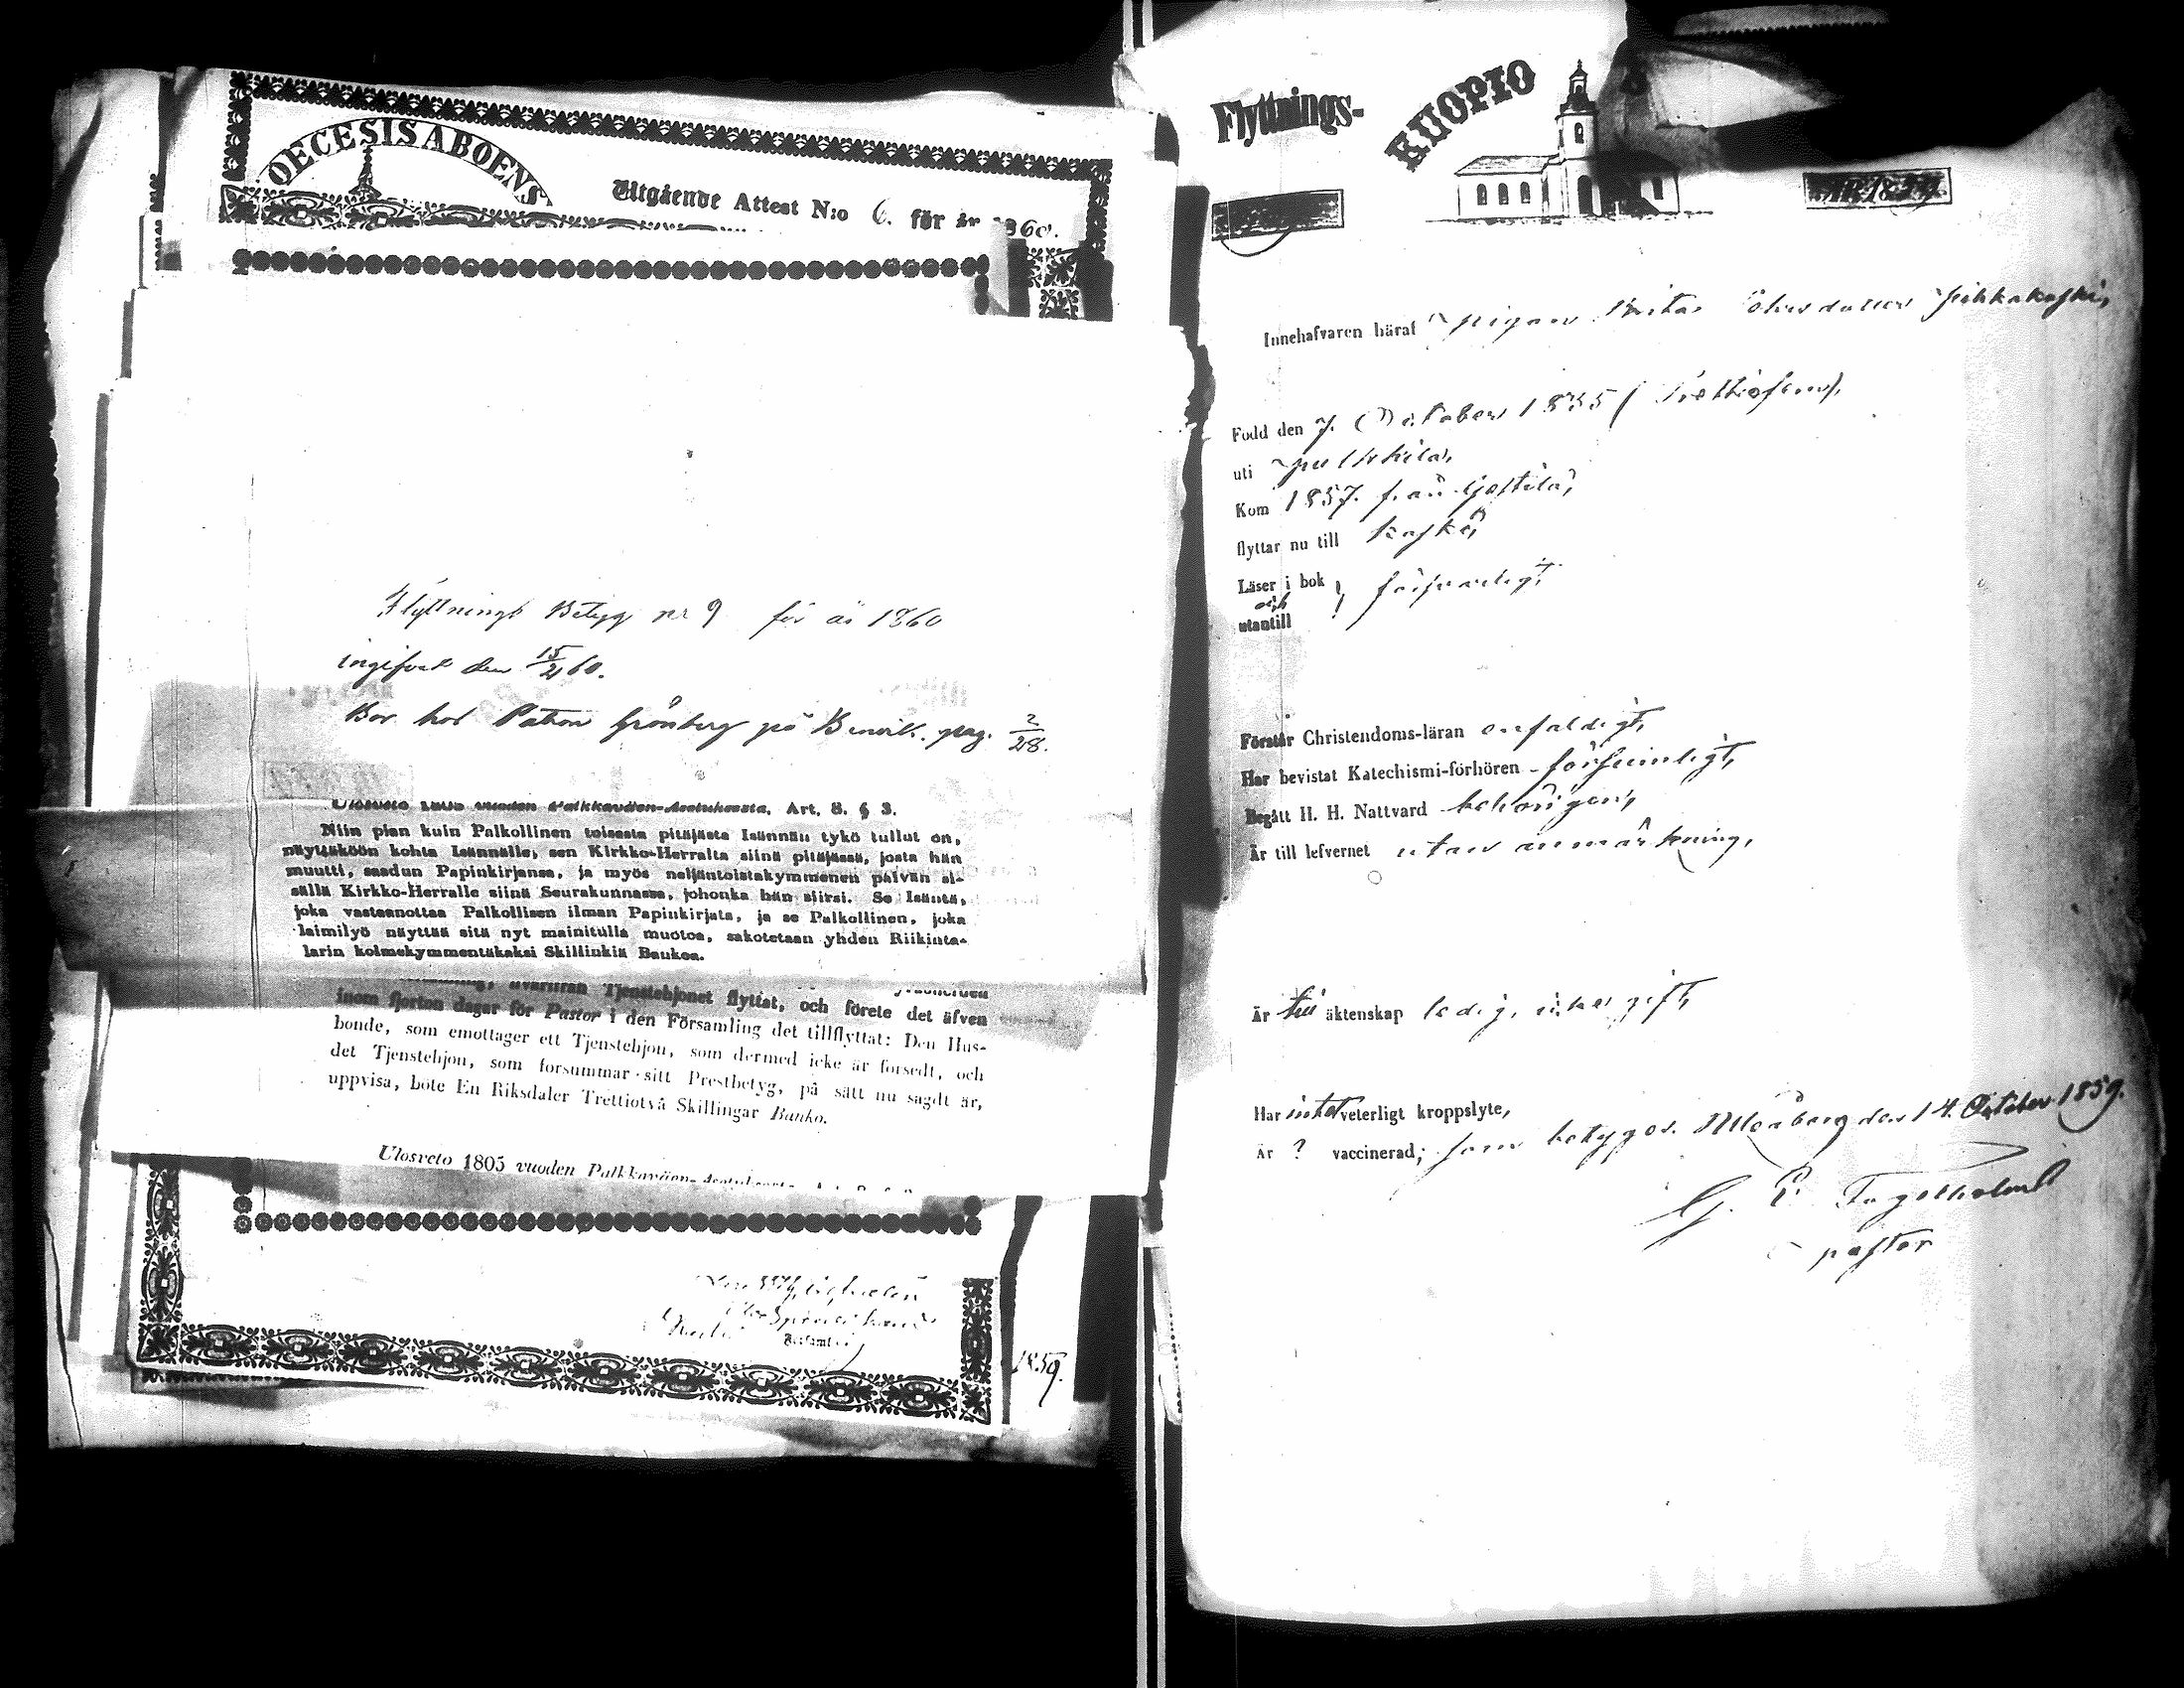 OECESIS ABOENS
Utgående Attest N:o 6. för år 1860.
Flyttnings Betyg nr 9 för år 1860
ingifvet den 15/4 60.
Bor hos Patron Grönberg på pag. 2/28.
Ulosveto 1805 vuoden Palkkaväen-Asetuksesta, Art. 8. § 3.
Niin pian kuin Palkollinen toisesta pitäjästä Isännän tykö tullut on,
näyttäköön kohta Isännälle, sen Kirkko-Herralta siinä pitäjässä, josta hän
muutti, saadun Papinkirjansa, ja myös neljäntoistakymmenen päivän si-
sällä Kirkko-Herralle siinä Seurakunnassa, johonka hän siirsi. Se Isäntä,
joka vastaanottaa Palkollisen ilman Papinkirjata, ja se Palkollinen, joka
laimilyö näyttää sitä nyt mainitulla muotoa, sakotetaan yhden Riikinta-
larin kolmekymmentäkaksi Skillinkiä Baukoa.
hvarifrån Tjenstehjonet flyttat, och förete det äfven
inom fjorton dagar för Pastor i den Församling det tillflyttat: Den Hus-
bonde, som emottager ett Tjenstehjon, som dermed icke är försedt, och
det Tjenstehjon, som försummar sitt Prestbetyg, på sätt nu sagdt är,
uppvisa, böte En Riksdaler Trettiotvå Skillingar Banko.
Ulosveto 1805 vuoden Palkkaväen-Asetuksesta
1859.
Flyttnings-
KUOPIO
Innehafvaren häraf pigan Brita Ersdotter
Född den 7. October 1835 (Trettiofem),
uti Pulkkila,
Kom 1857. från
flyttar nu till Kaskö,
Läser i bok
och
utantill } försvarligt
Förstår Christendoms-läran enfaldigt,
Har bevistat Katechismi-förhören försumligt,
Begått H. H. Nattvard behörigen,
Är till lefvernet utan anmärkning,
Är till äktenskap ledig, icke gift,
Har intet veterligt kroppslyte,
Är ? vaccinerad; som betygas. Uleåborg den 14. October 1859.
pastor